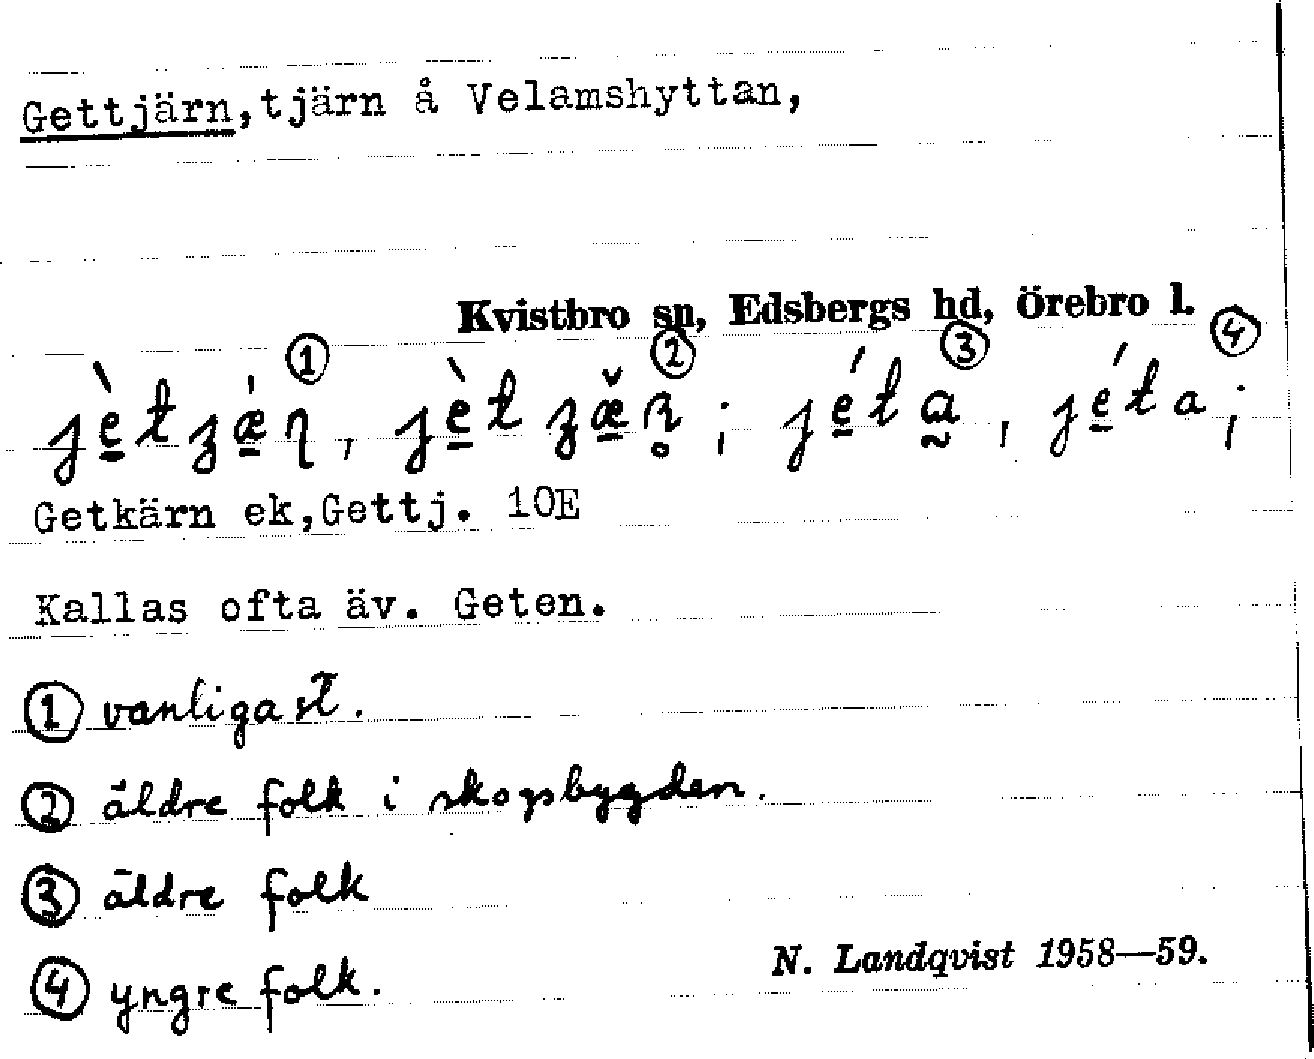 Gettjärn, tjärn å Velamshyttan,
Kvistbro sn, Edsbergs hd, Örebro l.
① ② ③ ④
Getkärn ek, Gettj. 10E
Kallas ofta äv. Geten.
① vanligast.
② äldre folk i skogsbygden.
③ äldre folk
④ yngre folk.
N. Landqvist 1958—59.